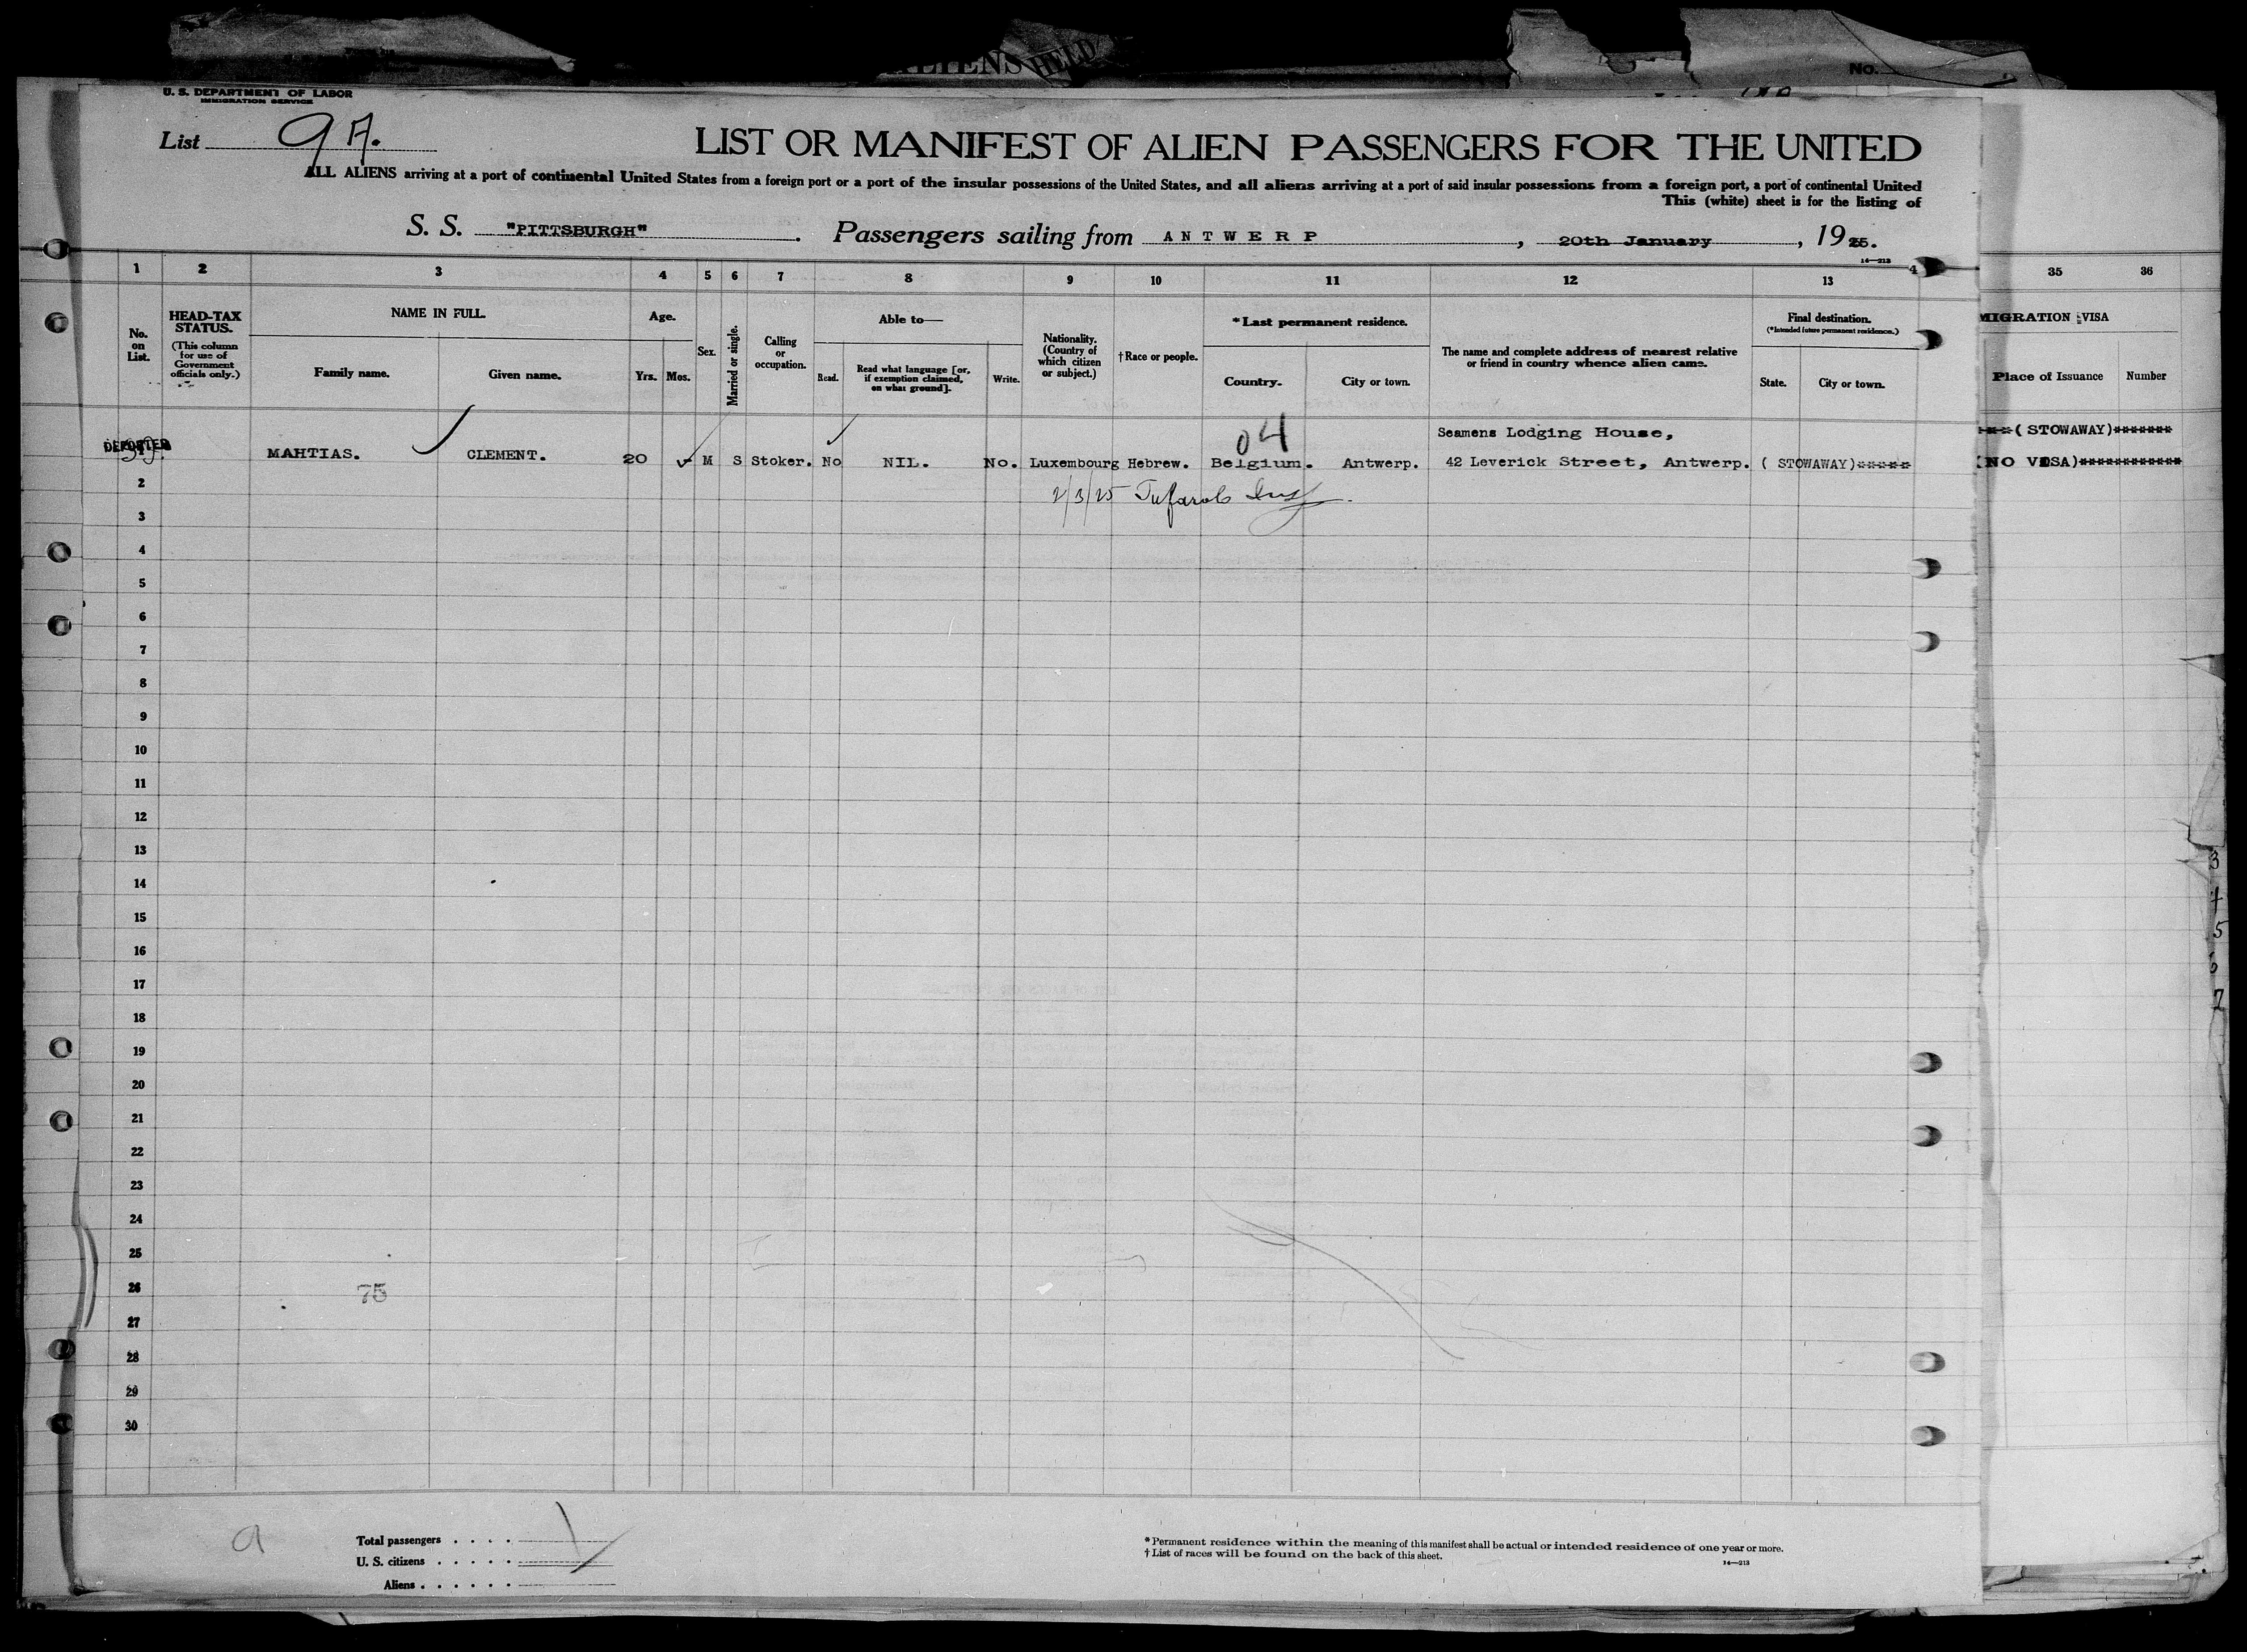 ALIENS HELD
No.
U. S. DEPARTMENT OF LABOR
IMMIGRATION SERVICE
List 9 A.
LIST OR MANIFEST OF ALIEN PASSENGERS FOR THE UNITED
ALL ALIENS arriving at a port of continental United States from a foreign port or a port of the insular possessions of the United States, and all aliens arriving at a port of said insular possessions from a foreign port, a port of continental United
This (white) sheet is for the listing of
S. S. "PITTSBURGH". Passengers sailing from ANTWERP, 20th January, 1925.
14—213
1 2 3 4 5 6 7 8 9 10 11 12 13 4 35 36
No. on List.
HEAD-TAX STATUS.
(This column for use of Government officials only.)
NAME IN FULL.
Family name. Given name.
Age.
Yrs. Mos.
Sex.
Married or single.
Calling or occupation.
Able to—
Read. Read what language [or, if exemption claimed, on what ground]. Write.
Nationality. (Country of which citizen or subject.)
†Race or people.
*Last permanent residence.
Country. City or town.
The name and complete address of nearest relative or friend in country whence alien came.
Final destination.
(*Intended future permanent residence.)
State. City or town.
MIGRATION VISA
Place of Issuance Number
04
Seamens Lodging House, (STOWAWAY)*******
DEPORTED MAHTIAS. CLEMENT. 20 M S Stoker. No NIL. No. Luxembourg Hebrew. Belgium. Antwerp. 42 Leverick Street, Antwerp. ( STOWAWAY)***** (NO VISA)************
2/3/25
2
3
4
5
6
7
8
9
10
11
12
13
14
15
16
17
18
19
20
21
22
23
24
25
26
75
27
28
29
30
3
4
5
6
7
a
Total passengers . . . .
U. S. citizens . . . . .
Aliens . . . . . .
*Permanent residence within the meaning of this manifest shall be actual or intended residence of one year or more.
†List of races will be found on the back of this sheet.
14—213